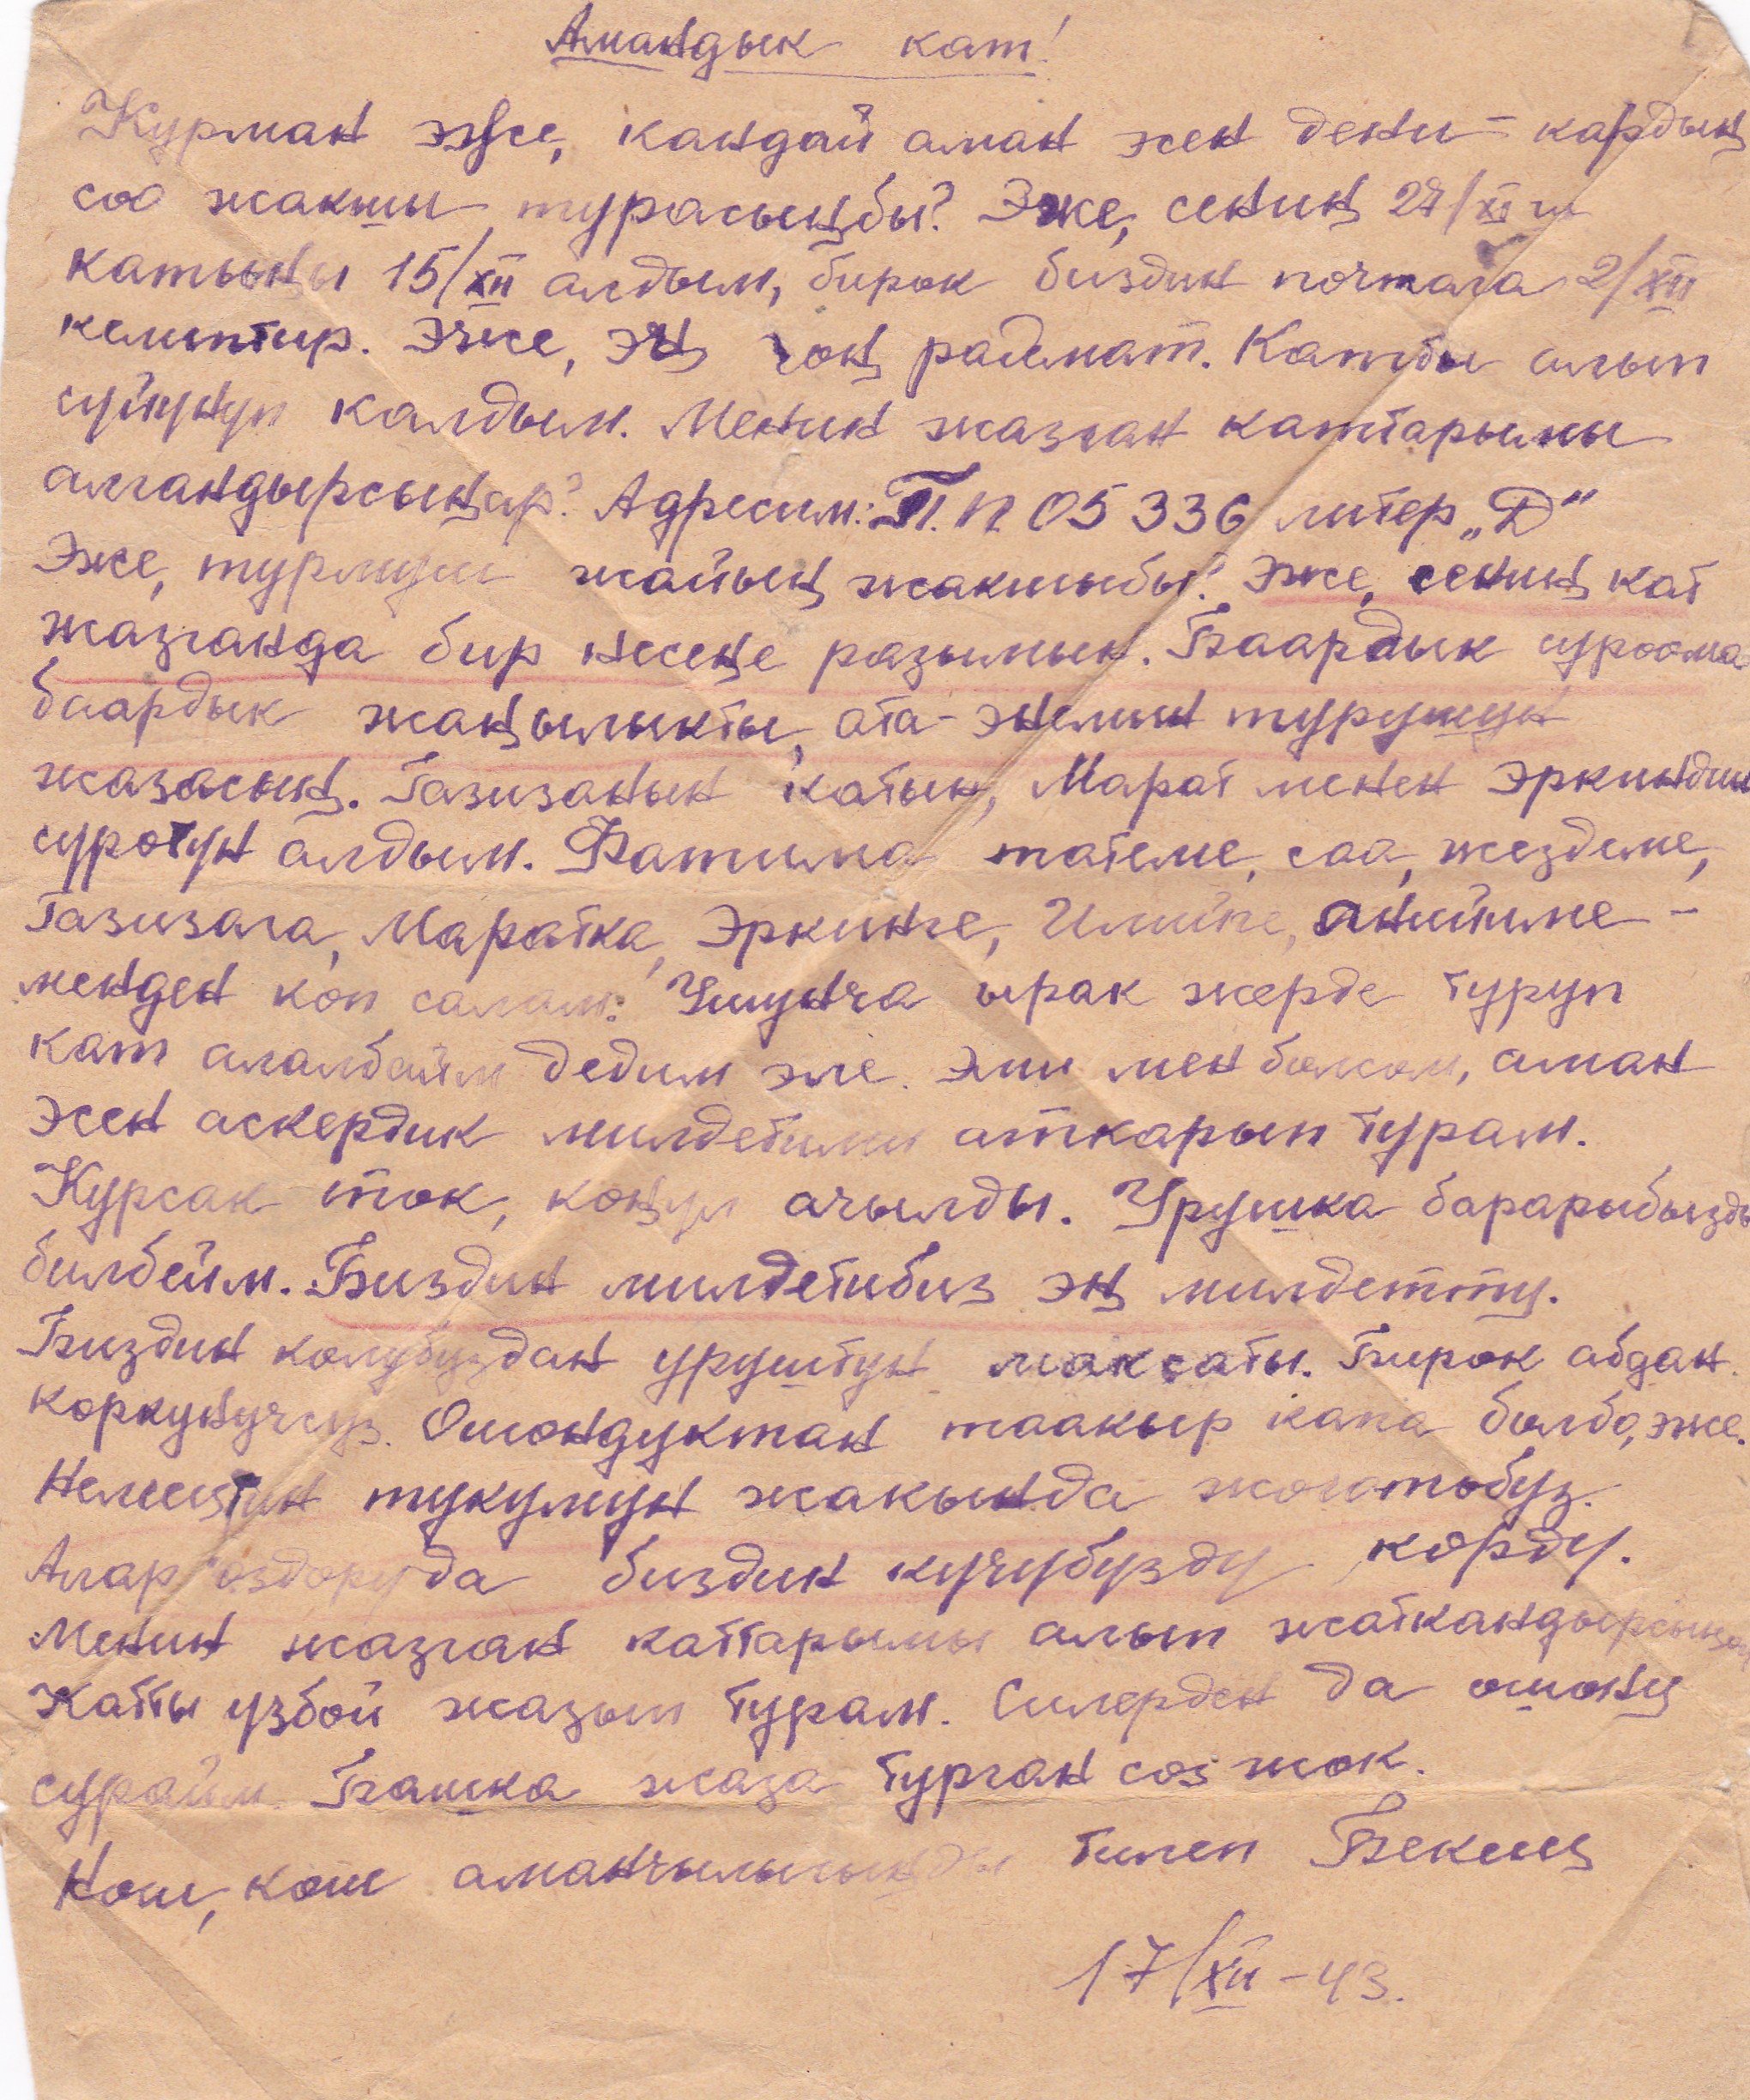 Амандык кат!
Курман эже, кандай аман эсен дени-кардың
соо жакшы турасыңбы? Эже, сениң 27/XI
катыңы 15/XII алдым, бирок биздин почтага 2/XII
келиптир. Эже, эң чоң раймат. Катты алып
суйунуп калдым. Менин жазган каттарымы
алгандырсыңар? Адресим: П.П. 05336 литер „Д"
Эже, турмуш жайың жакшыбы? Эже, сениң кат
жазганда бир несеңе разымын. Баардык суроома
баардык жаңылыкты, ата-энемин турушун
жазасың. Газизанын катын, Марат менен Эркиндин
суротун алдым. Фатима татеме, саа, жездеме,
Газизага, Маратка, Эркинге,
менден коп салам. Ушунча ырак жерде туруп
кат алалбаймм дедим эле. Эми мен болсом, аман
эсен аскердик милдетими аткарып турам.
Курсак ток, коңул ачылды. Урушка барарыбызды
билбейм. Биздин милдетибиз эң милдеттуу.
Биздин колубуздан уруштун максаты. Бирок абдан
коркунучсуз. Ошондуктан таакыр капа болбо, эже.
Немецтин тукумун жакында жоготобуз.
Алар оздору да биздин кучубузду корду.
Менин жазган каттарымы алып жаткандырсыңар
Катты узбой жазып турам. Силерден да ошону
сурайм. Башка жаза турган соз жок.
Кош, кош аманчылыгыңды тилеп Бекиш
17/XII-43.